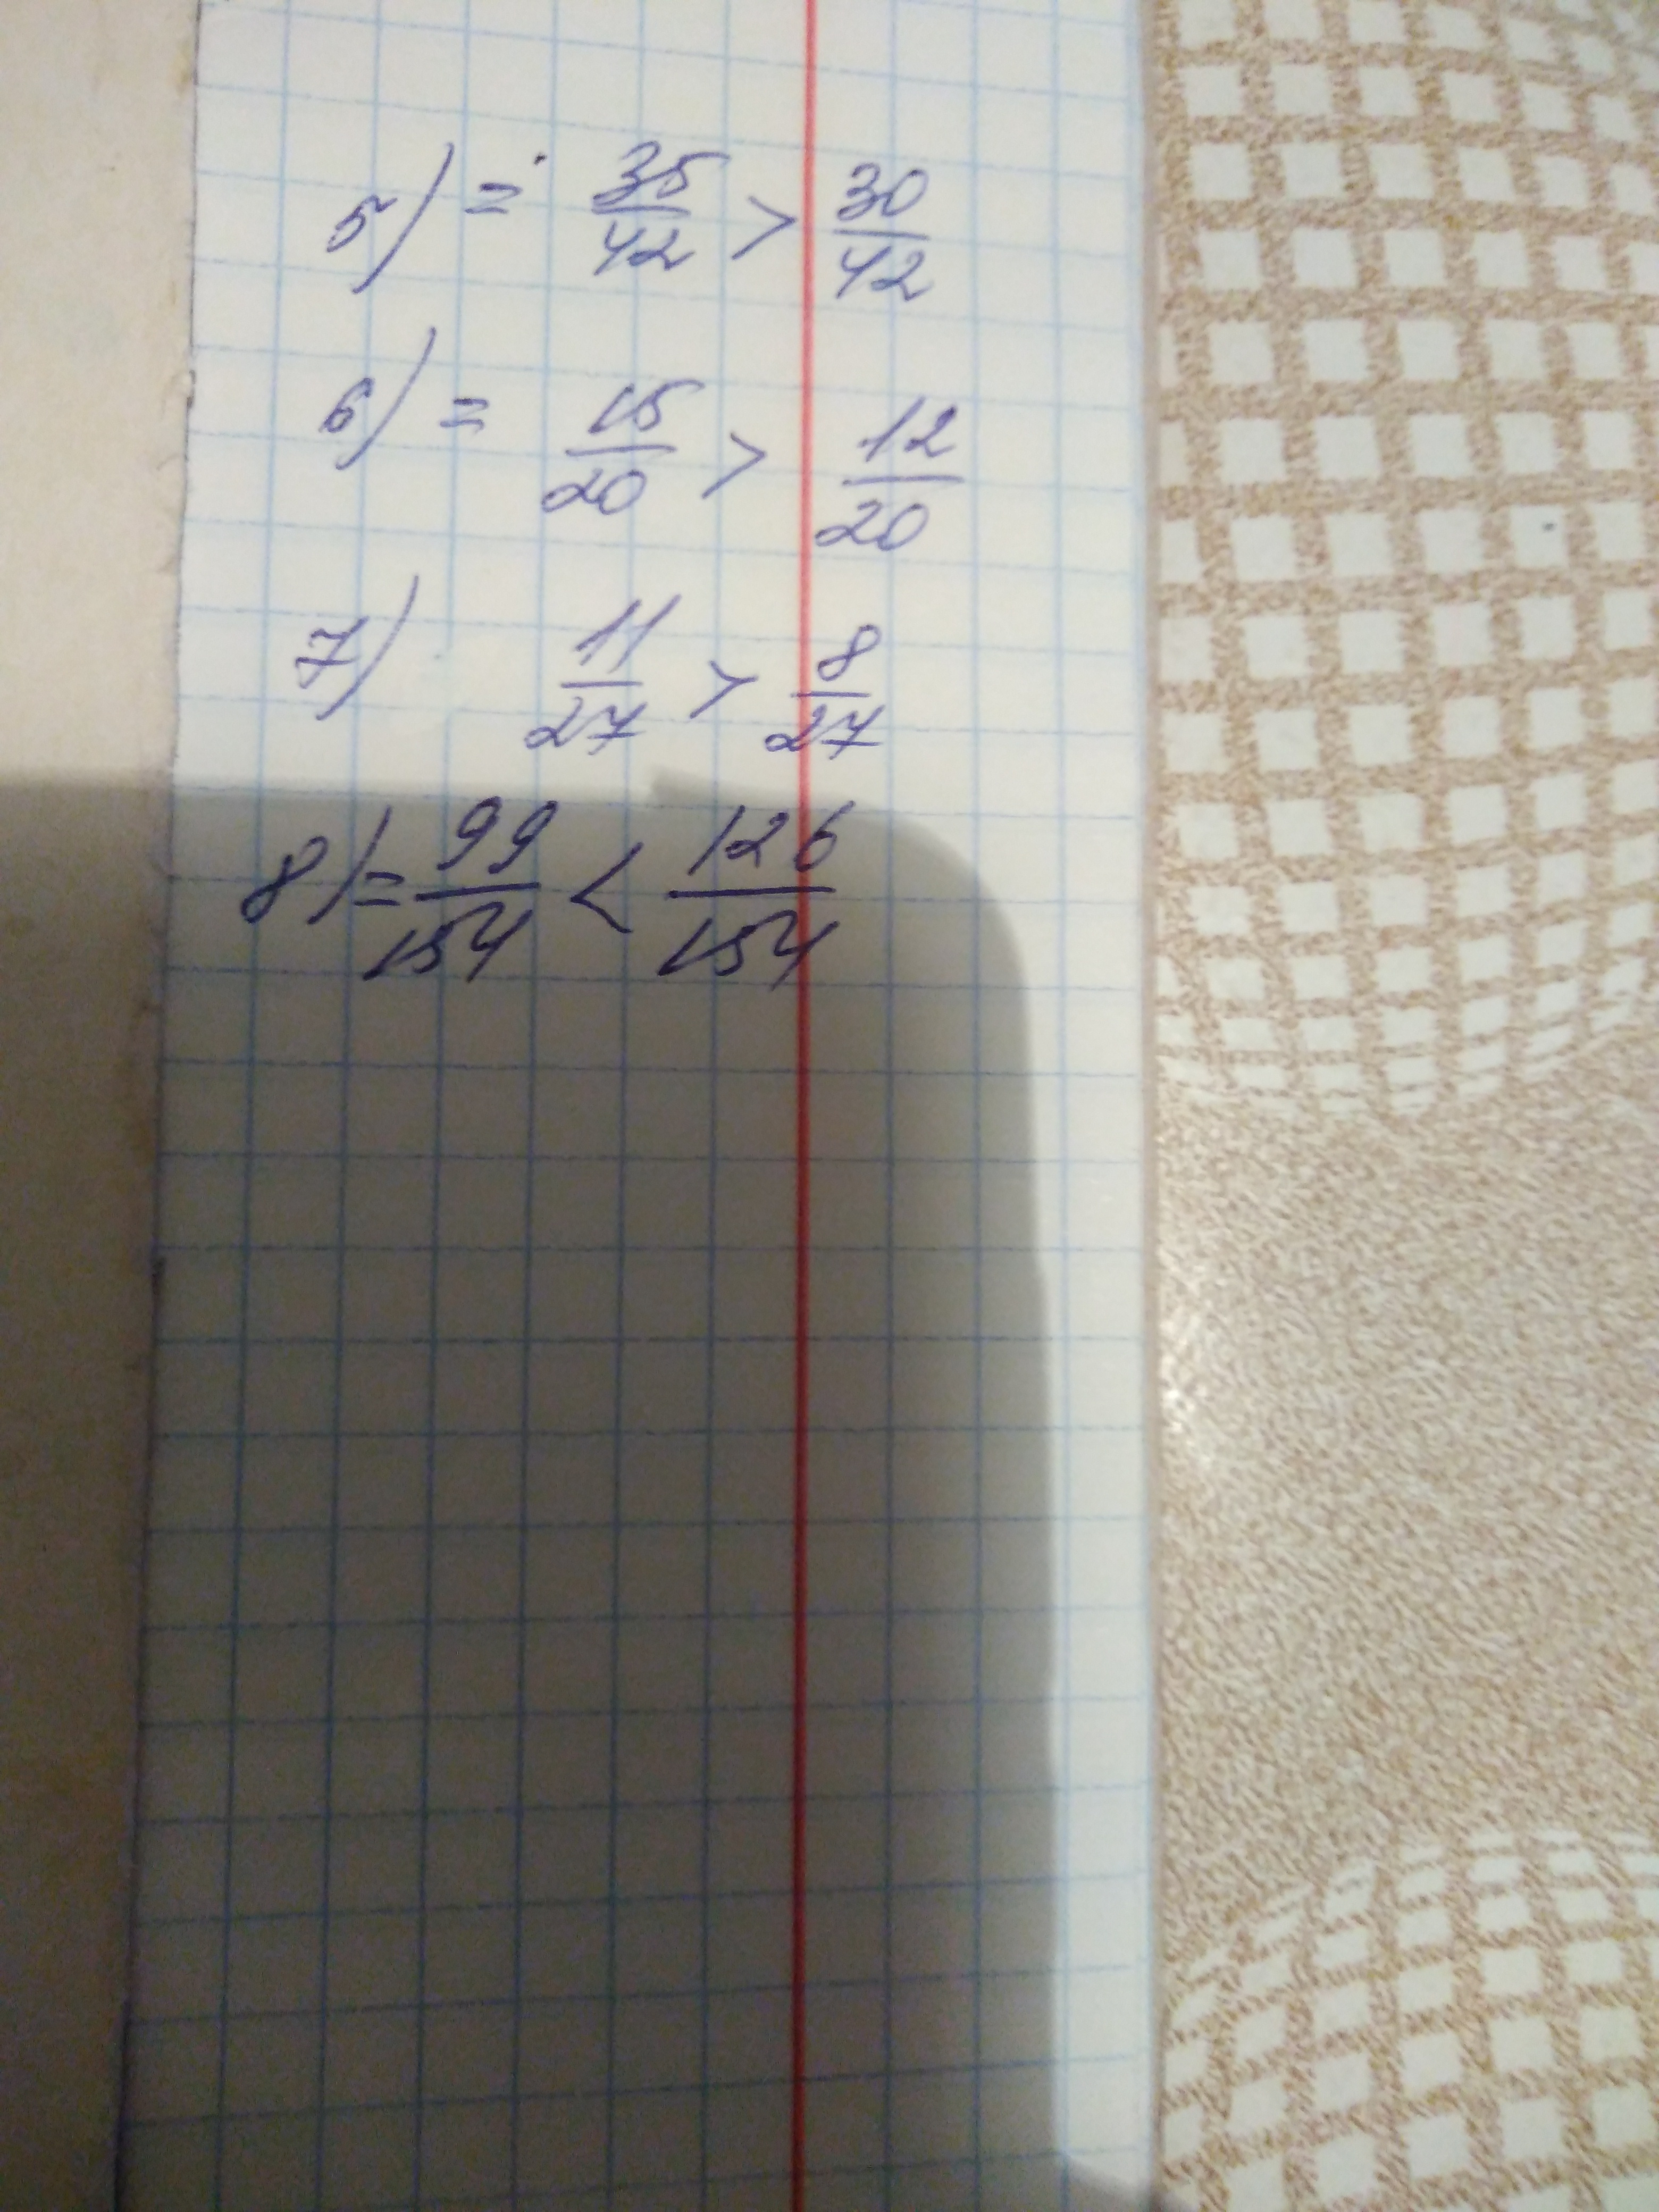 5) = 35/42 > 30/42
6) = 15/20 > 12/20
7) 11/27 > 8/27
8) = 99/154 < 126/154